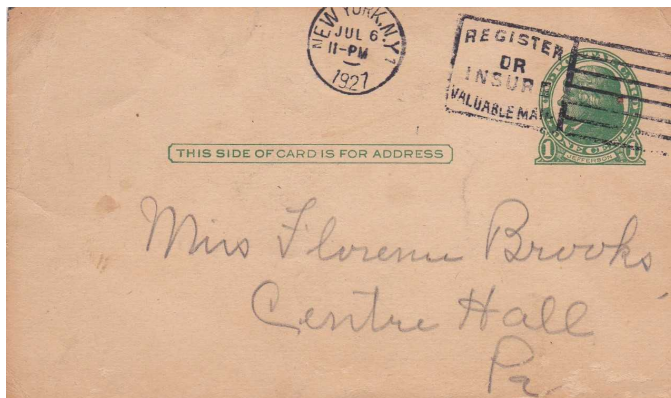 NEW YORK, N.Y. 1
JUL 6
11-PM
1927
REGISTER
OR
INSURE
VALUABLE MAIL
U.S. POSTAL CARD
ONE CENT
1 JEFFERSON 1
THIS SIDE OF CARD IS FOR ADDRESS
Miss Florence Brooks
Centre Hall
Pa.